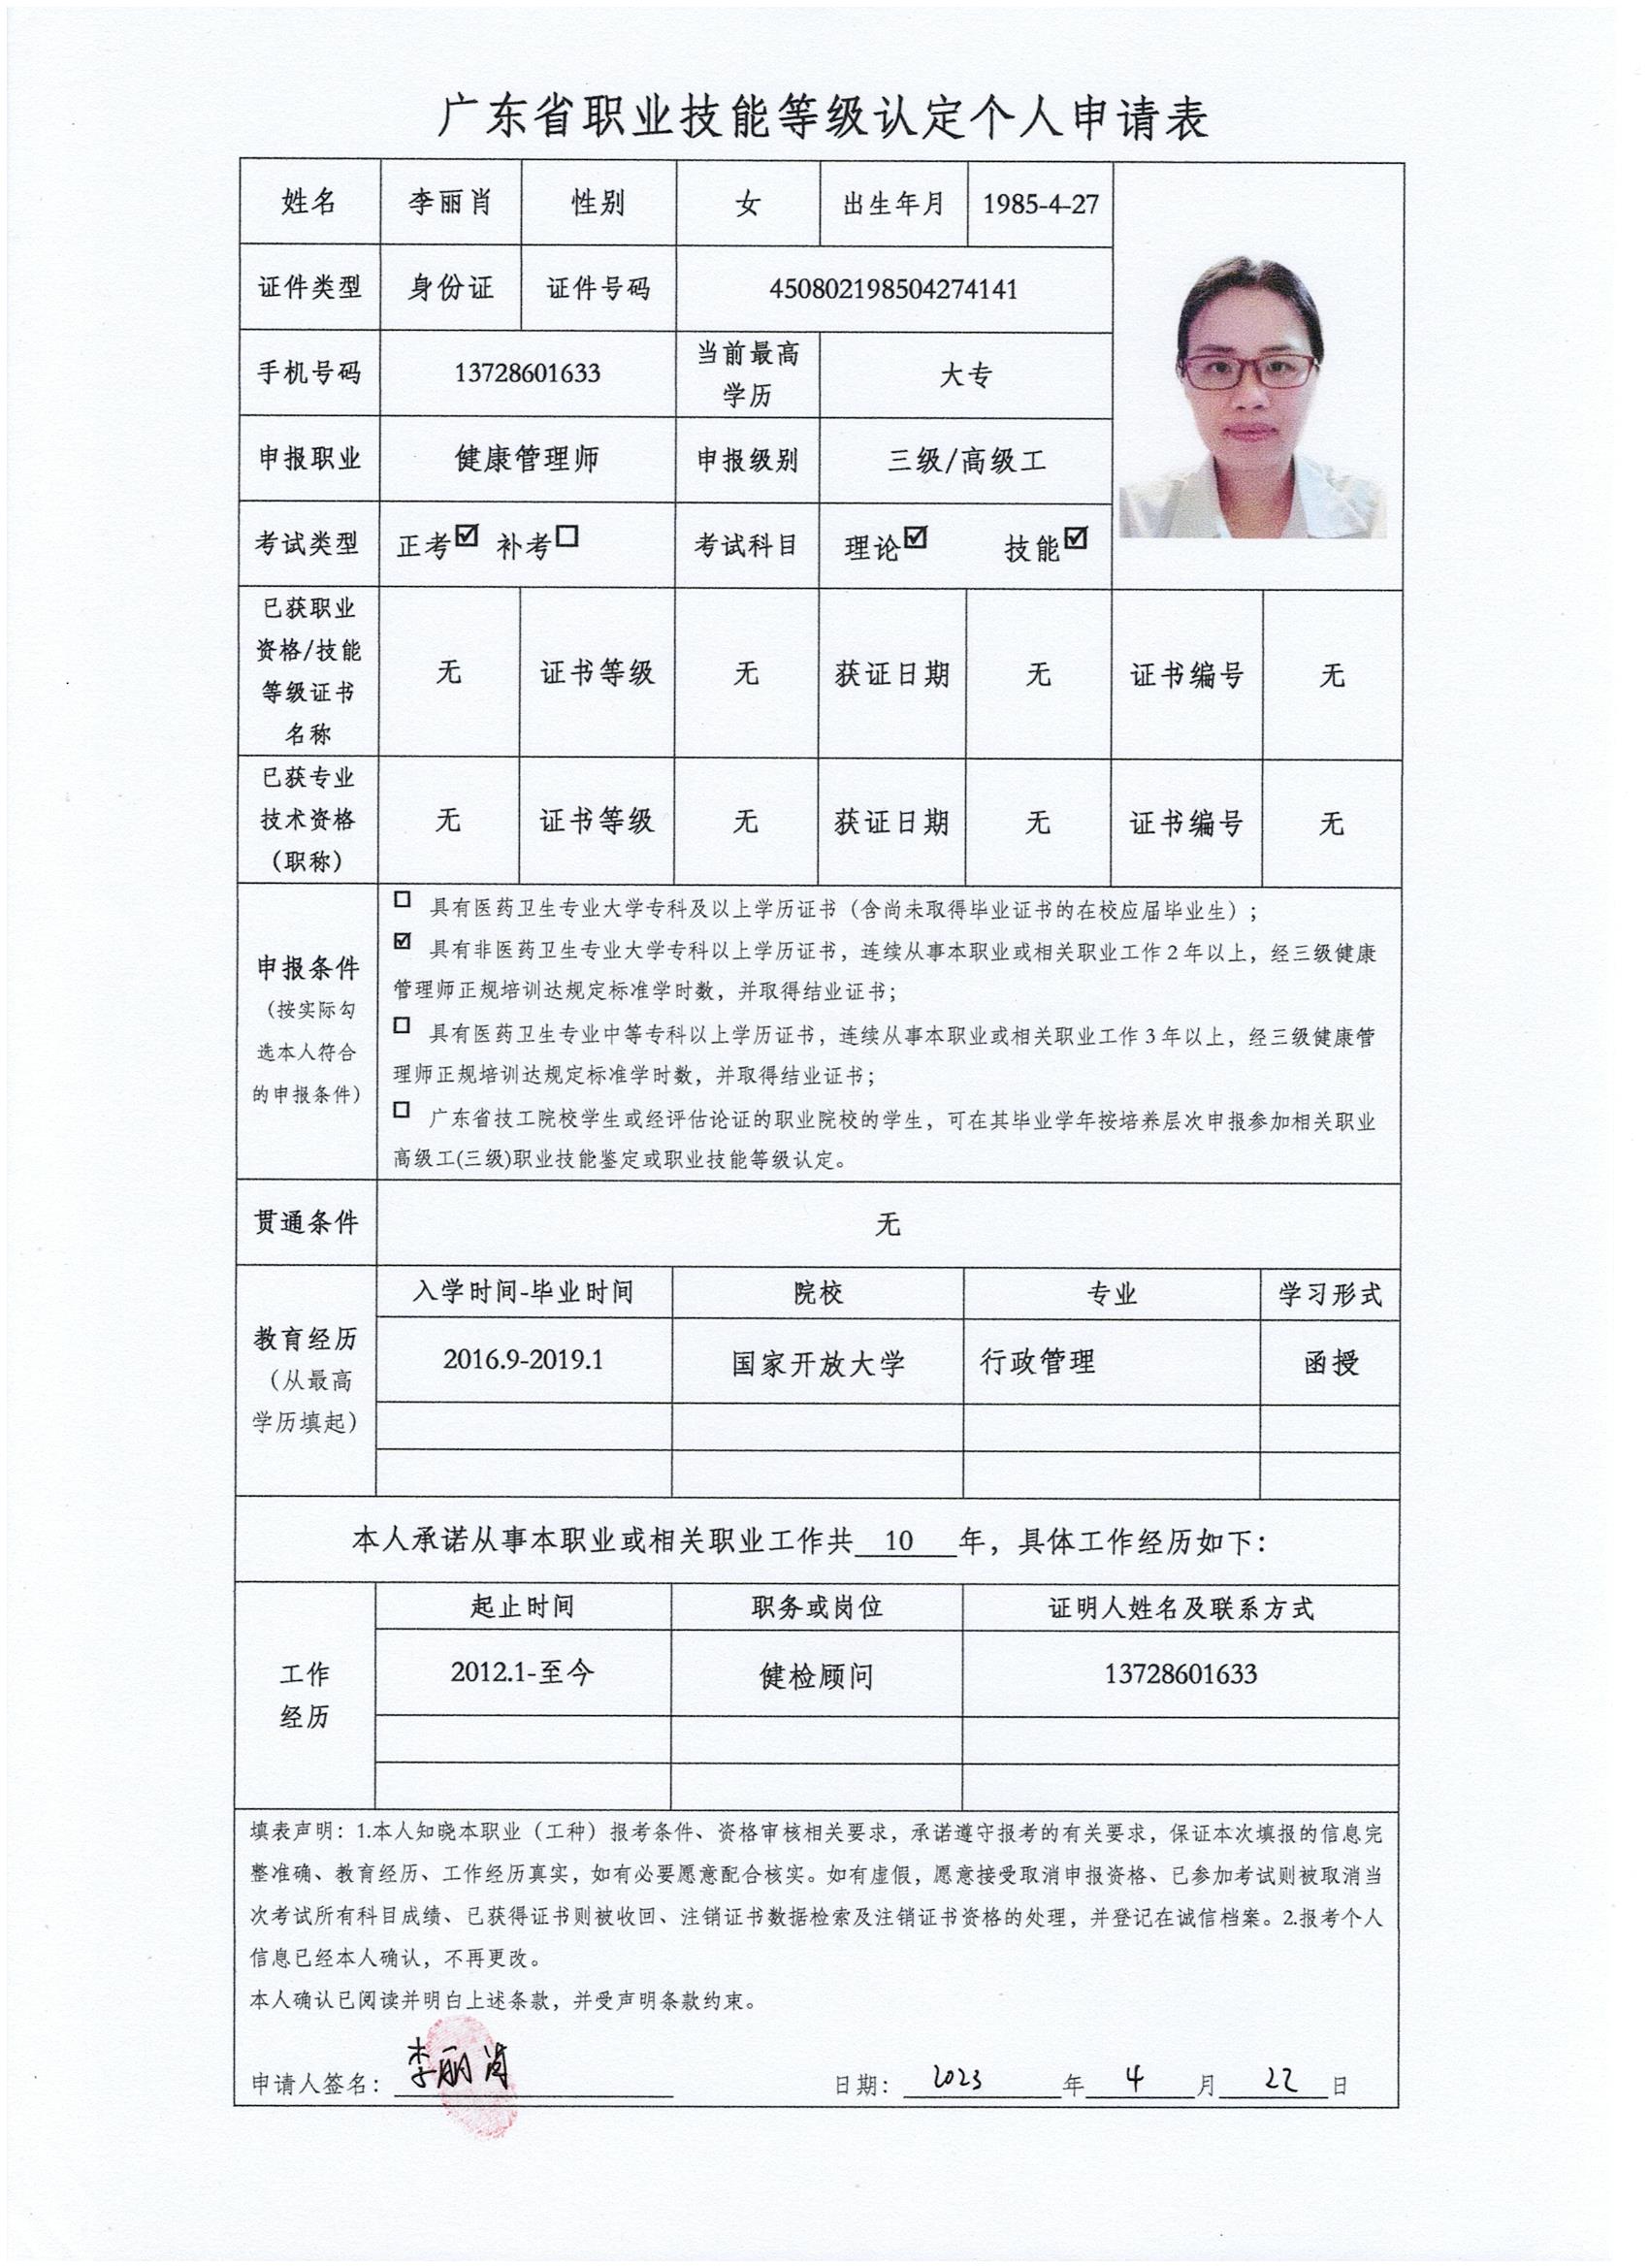 广东省职业技能等级认定个人申请表
姓名 李丽肖 性别 女 出生年月 1985-4-27
证件类型 身份证 证件号码 450802198504274141
手机号码 13728601633 当前最高学历 大专
申报职业 健康管理师 申报级别 三级/高级工
考试类型 正考☑ 补考☐ 考试科目 理论☑ 技能☑
已获职业资格/技能等级证书名称 无 证书等级 无 获证日期 无 证书编号 无
已获专业技术资格（职称） 无 证书等级 无 获证日期 无 证书编号 无
申报条件
（按实际勾选本人符合的申报条件）
☐ 具有医药卫生专业大学专科及以上学历证书（含尚未取得毕业证书的在校应届毕业生）；
☑ 具有非医药卫生专业大学专科以上学历证书，连续从事本职业或相关职业工作2年以上，经三级健康
管理师正规培训达规定标准学时数，并取得结业证书；
☐ 具有医药卫生专业中等专科以上学历证书，连续从事本职业或相关职业工作3年以上，经三级健康管
理师正规培训达规定标准学时数，并取得结业证书；
☐ 广东省技工院校学生或经评估论证的职业院校的学生，可在其毕业学年按培养层次申报参加相关职业
高级工(三级)职业技能鉴定或职业技能等级认定。
贯通条件 无
教育经历
（从最高学历填起）
入学时间-毕业时间 院校 专业 学习形式
2016.9-2019.1 国家开放大学 行政管理 函授
本人承诺从事本职业或相关职业工作共 10 年，具体工作经历如下：
工作经历
起止时间 职务或岗位 证明人姓名及联系方式
2012.1-至今 健检顾问 13728601633
填表声明：1.本人知晓本职业（工种）报考条件、资格审核相关要求，承诺遵守报考的有关要求，保证本次填报的信息完
整准确、教育经历、工作经历真实，如有必要愿意配合核实。如有虚假，愿意接受取消申报资格、已参加考试则被取消当
次考试所有科目成绩、已获得证书则被收回、注销证书数据检索及注销证书资格的处理，并登记在诚信档案。2.报考个人
信息已经本人确认，不再更改。
本人确认已阅读并明白上述条款，并受声明条款约束。
申请人签名：李丽肖 日期：2023年4月22日